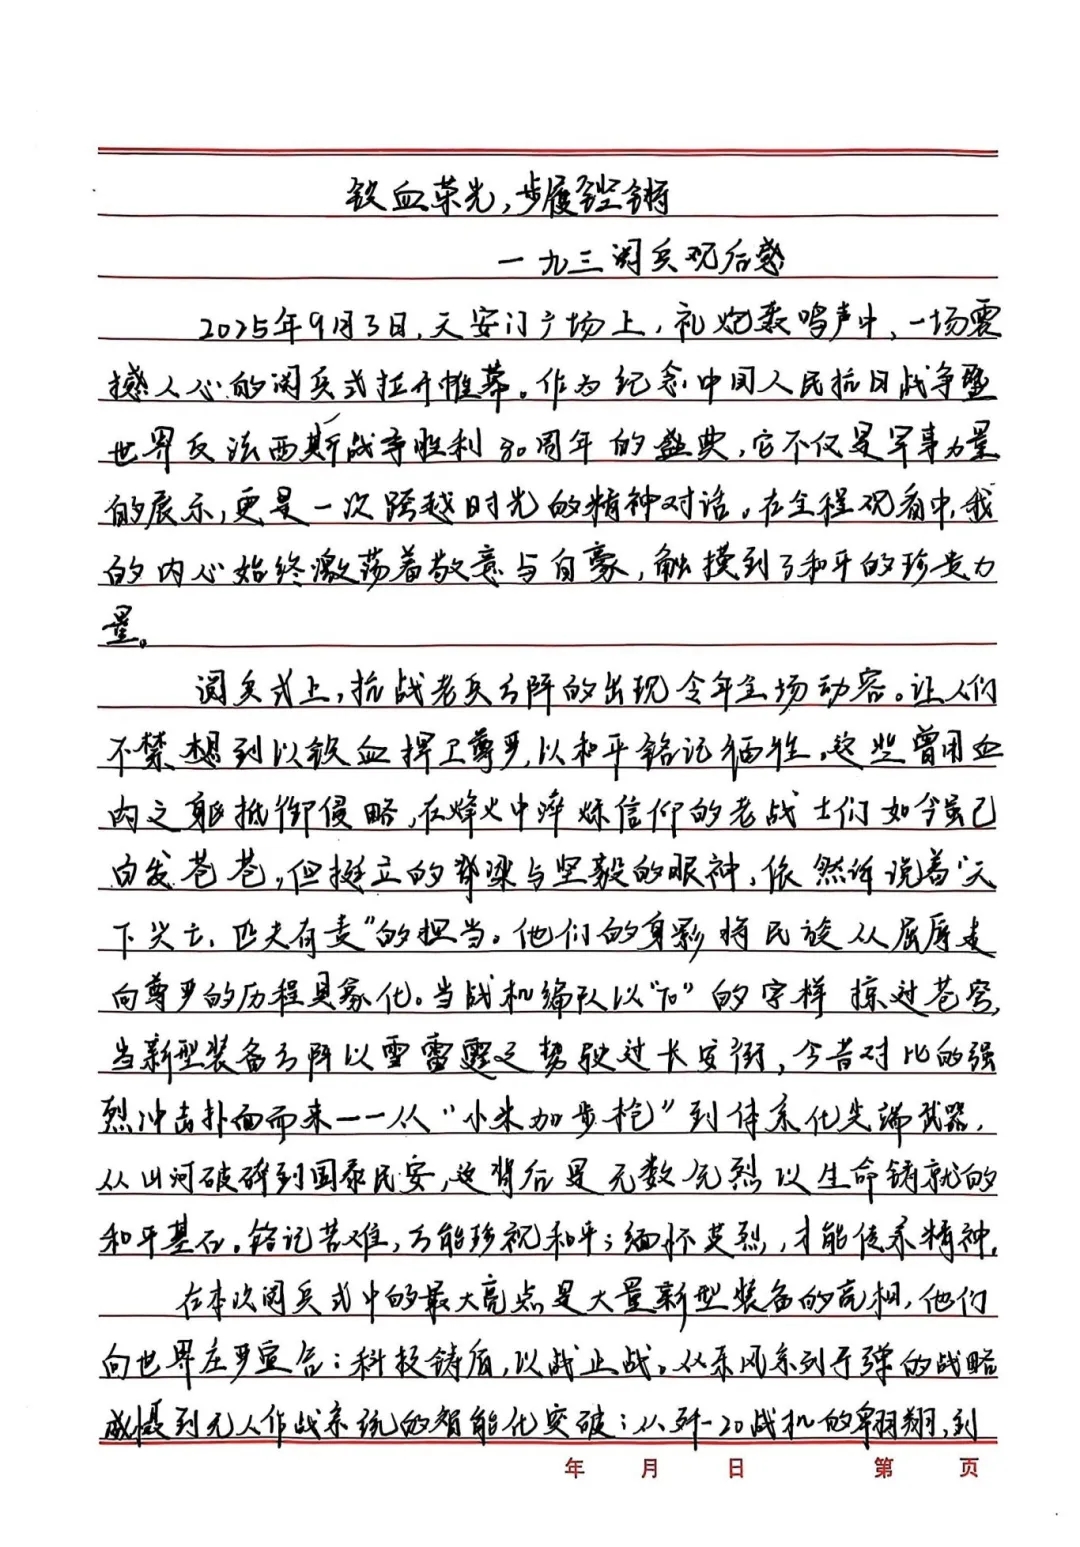 铁血荣光,步履铿锵
一九三阅兵观后感
2025年9月3日,天安门广场上,礼炮轰鸣声中,一场震
撼人心的阅兵式拉开帷幕。作为纪念中国人民抗日战争暨
世界反法西斯战争胜利80周年的盛典,它不仅是军事力量
的展示,更是一次跨越时光的精神对话。在全程观看中,我
的内心始终激荡着敬意与自豪,触摸到了和平的珍贵力
量。
阅兵式上,抗战老兵方阵的出现令年全场动容。让人们
不禁想到以铁血捍卫尊严,以和平铭记牺牲。这些曾用血
肉之躯抵御侵略,在烽火中淬炼信仰的老战士们如今虽已
白发苍苍,但挺立的脊梁与坚毅的眼神,依然诉说着“天
下兴亡,匹夫有责”的担当。他们的身影将民族从屈辱走
向尊严的历程具象化。当战机编队以“70”的字样掠过苍穹,
当新型装备方阵以雷霆之势驶过长安街,今昔对比的强
烈冲击扑面而来——从“小米加步枪”到体系化尖端武器,
从山河破碎到国泰民安,这背后是无数先烈以生命铸就的
和平基石。铭记苦难,方能珍视和平;缅怀英烈,才能传承精神。
在本次阅兵式中的最大亮点是大量新型装备的亮相,他们
向世界庄严宣告:科技铸盾,以战止战。从东风系列导弹的战略
威慑到无人作战系统的智能化突破;从歼-20战机的翱翔,到
年 月 日 第 页